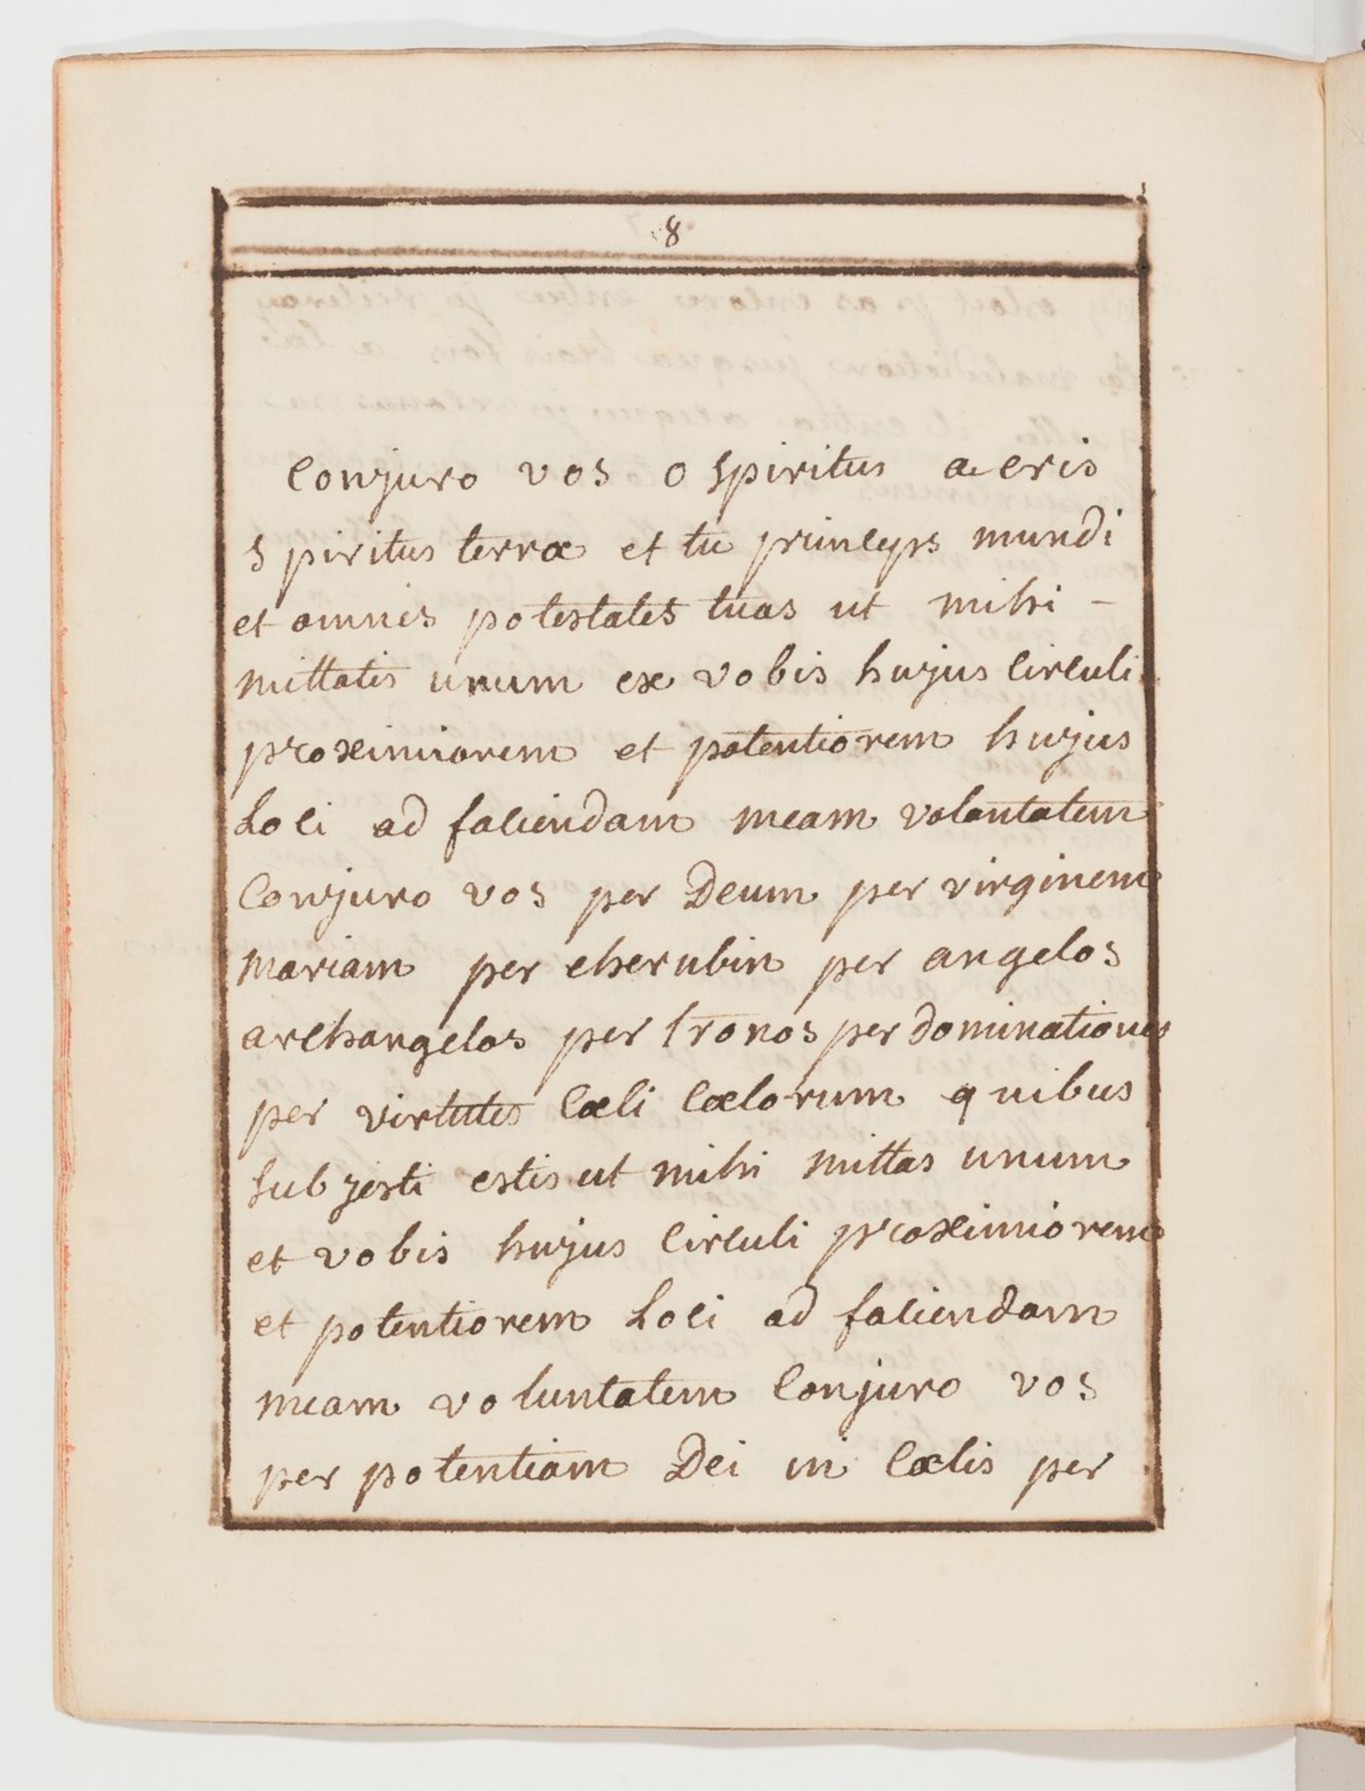 8
Conjuro vos o spiritus aeris
spiritus terræ et tu princeps mundi
et omnes potestates tuas ut mihi -
mittatis unum ex vobis hujus circuli
proximiorem et potentiorem hujus
Loci ad faciendam meam voluntatem
Conjuro vos per Deum per virginem
mariam per cherubin per angelos
archangelos per tronos per dominationes
per virtutes Cæli Cælorum quibus
subjesti estis ut mihi mittas unum
et vobis hujus circuli proximiorem
et potentiorem Loci ad faciendam
meam voluntatem Conjuro vos
per potentiam Dei in Cælis per